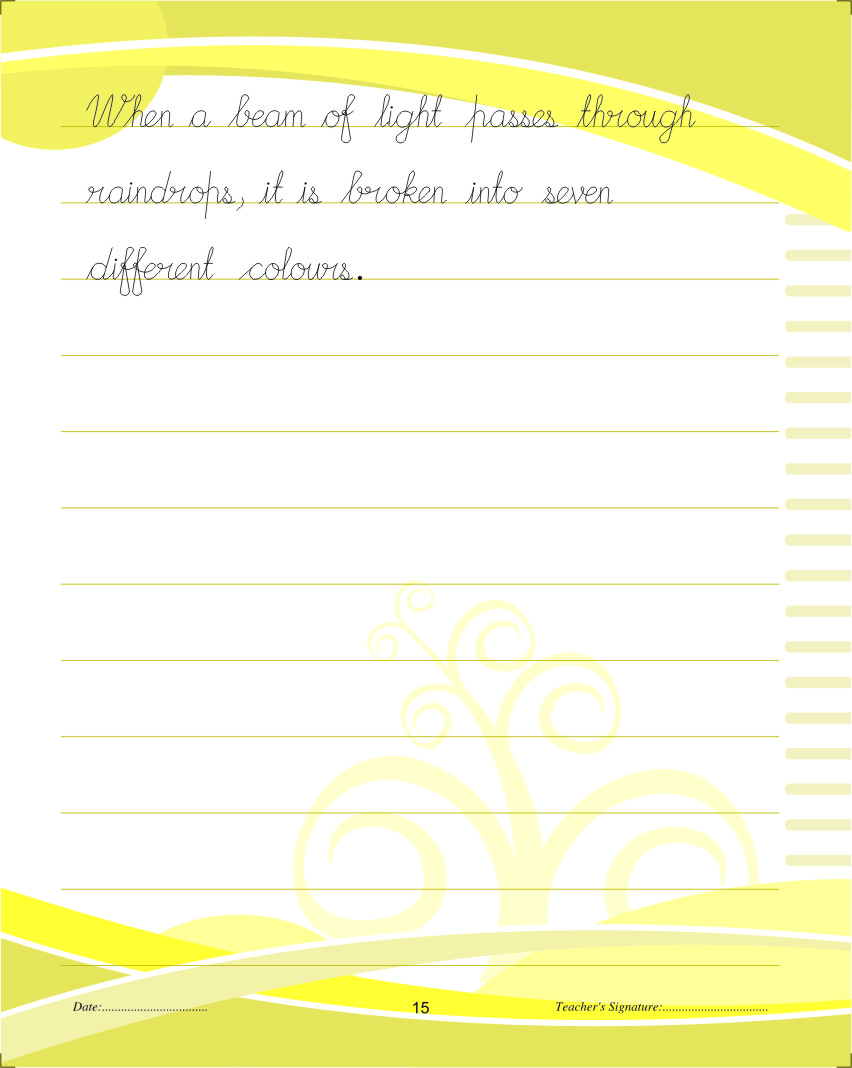 When a beam of light passes through
raindrops, it is broken into seven
different colours.
Date:................................. 15 Teacher's Signature:.................................